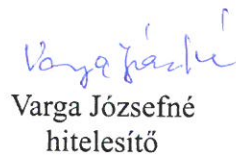 Varga Józsefné
Varga Józsefné
hitelesítő